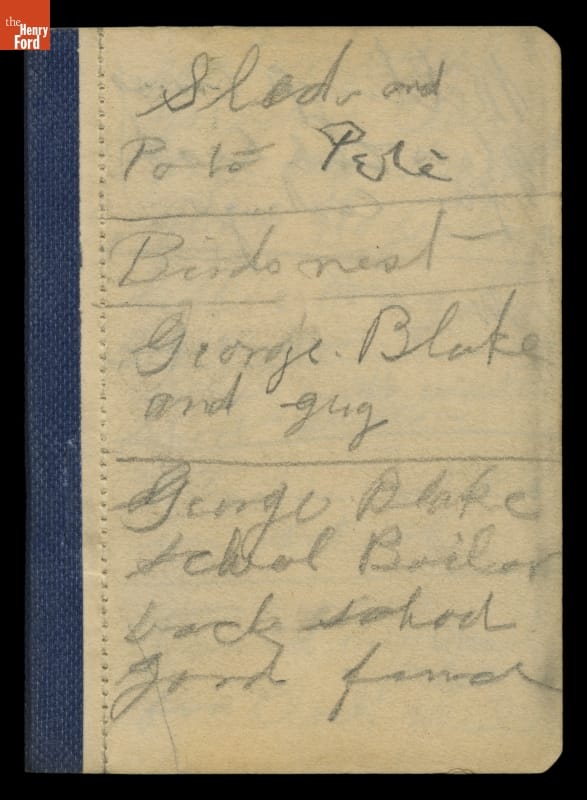 the
Henry
Ford
Sleds and
Pete
Birds nest
George Blake
and gug
George Blake
school Boiler
back school